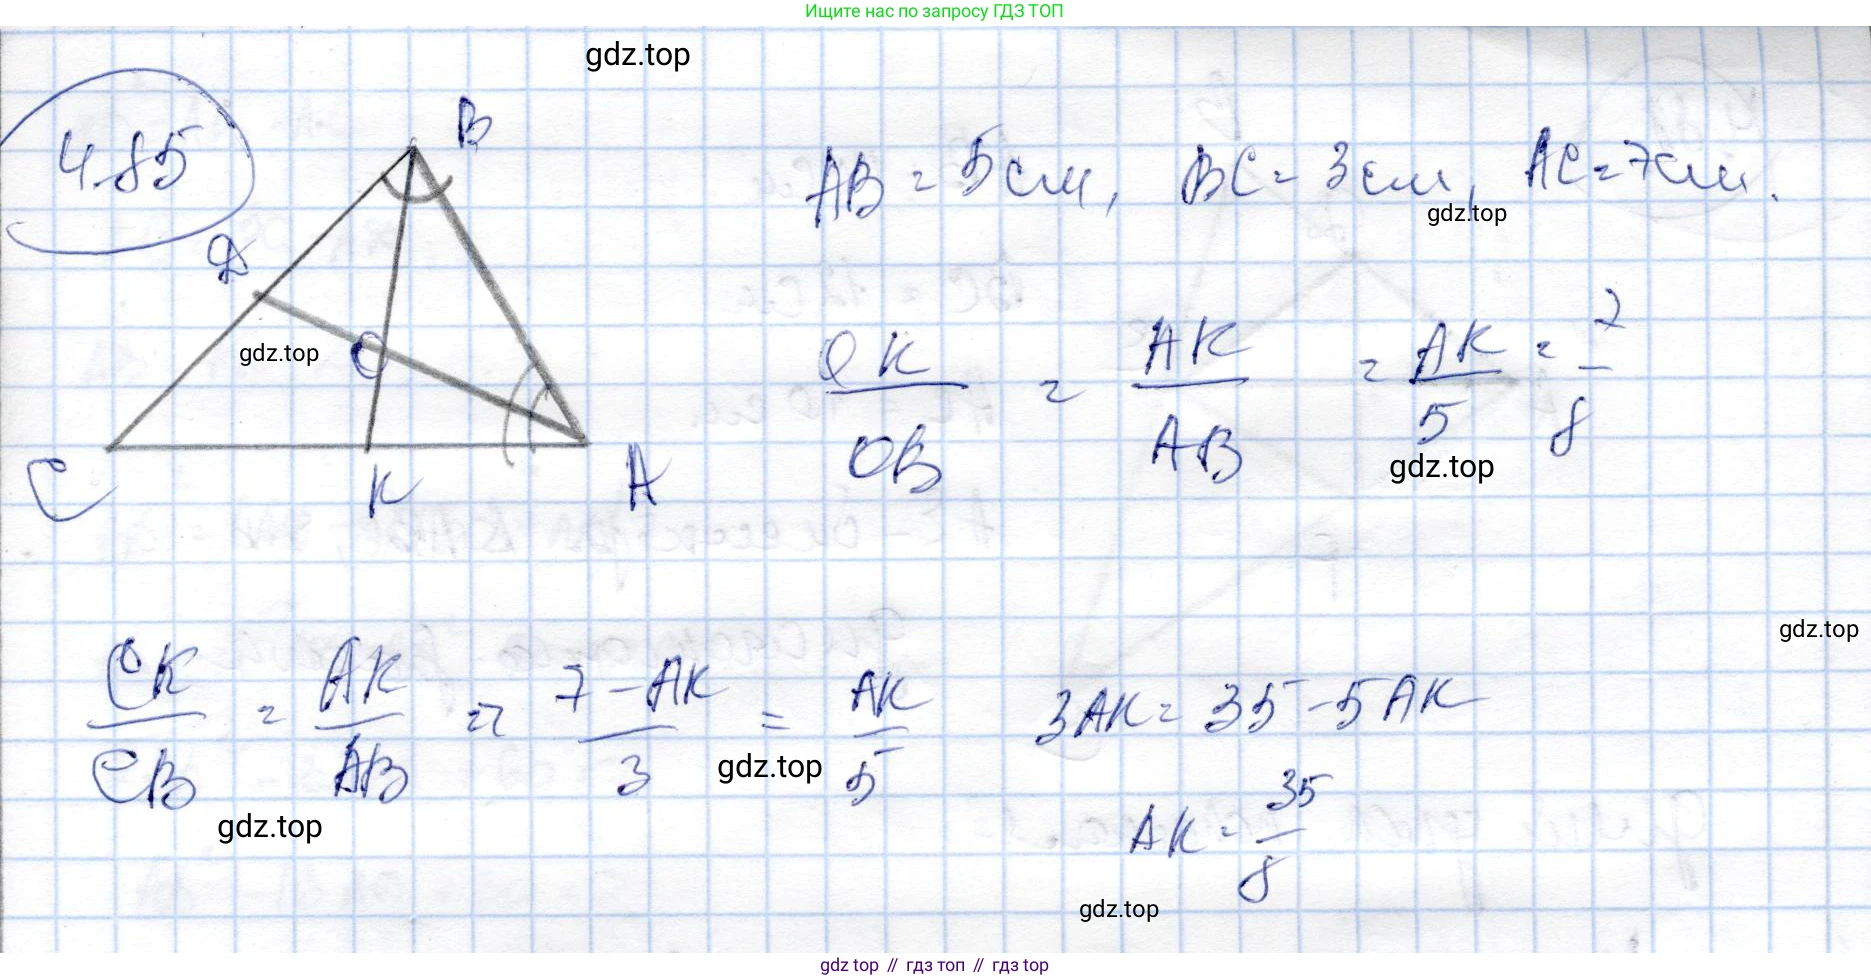 Ищите нас по запросу ГДЗ ТОП
gdz.top
485
B
D
O
C
K
A
AB = 5 см, BC = 3 см, AC = 7 см.
gdz.top
gdz.top
OK/OB = AK/AB = AK/5 = 7/8
gdz.top
gdz.top
CK/CB = AK/AB = 7 - AK/3 = AK/5
3AK = 35 - 5AK
gdz.top
gdz.top
AK = 35/8
gdz.top
gdz.top // гдз топ // гдз top